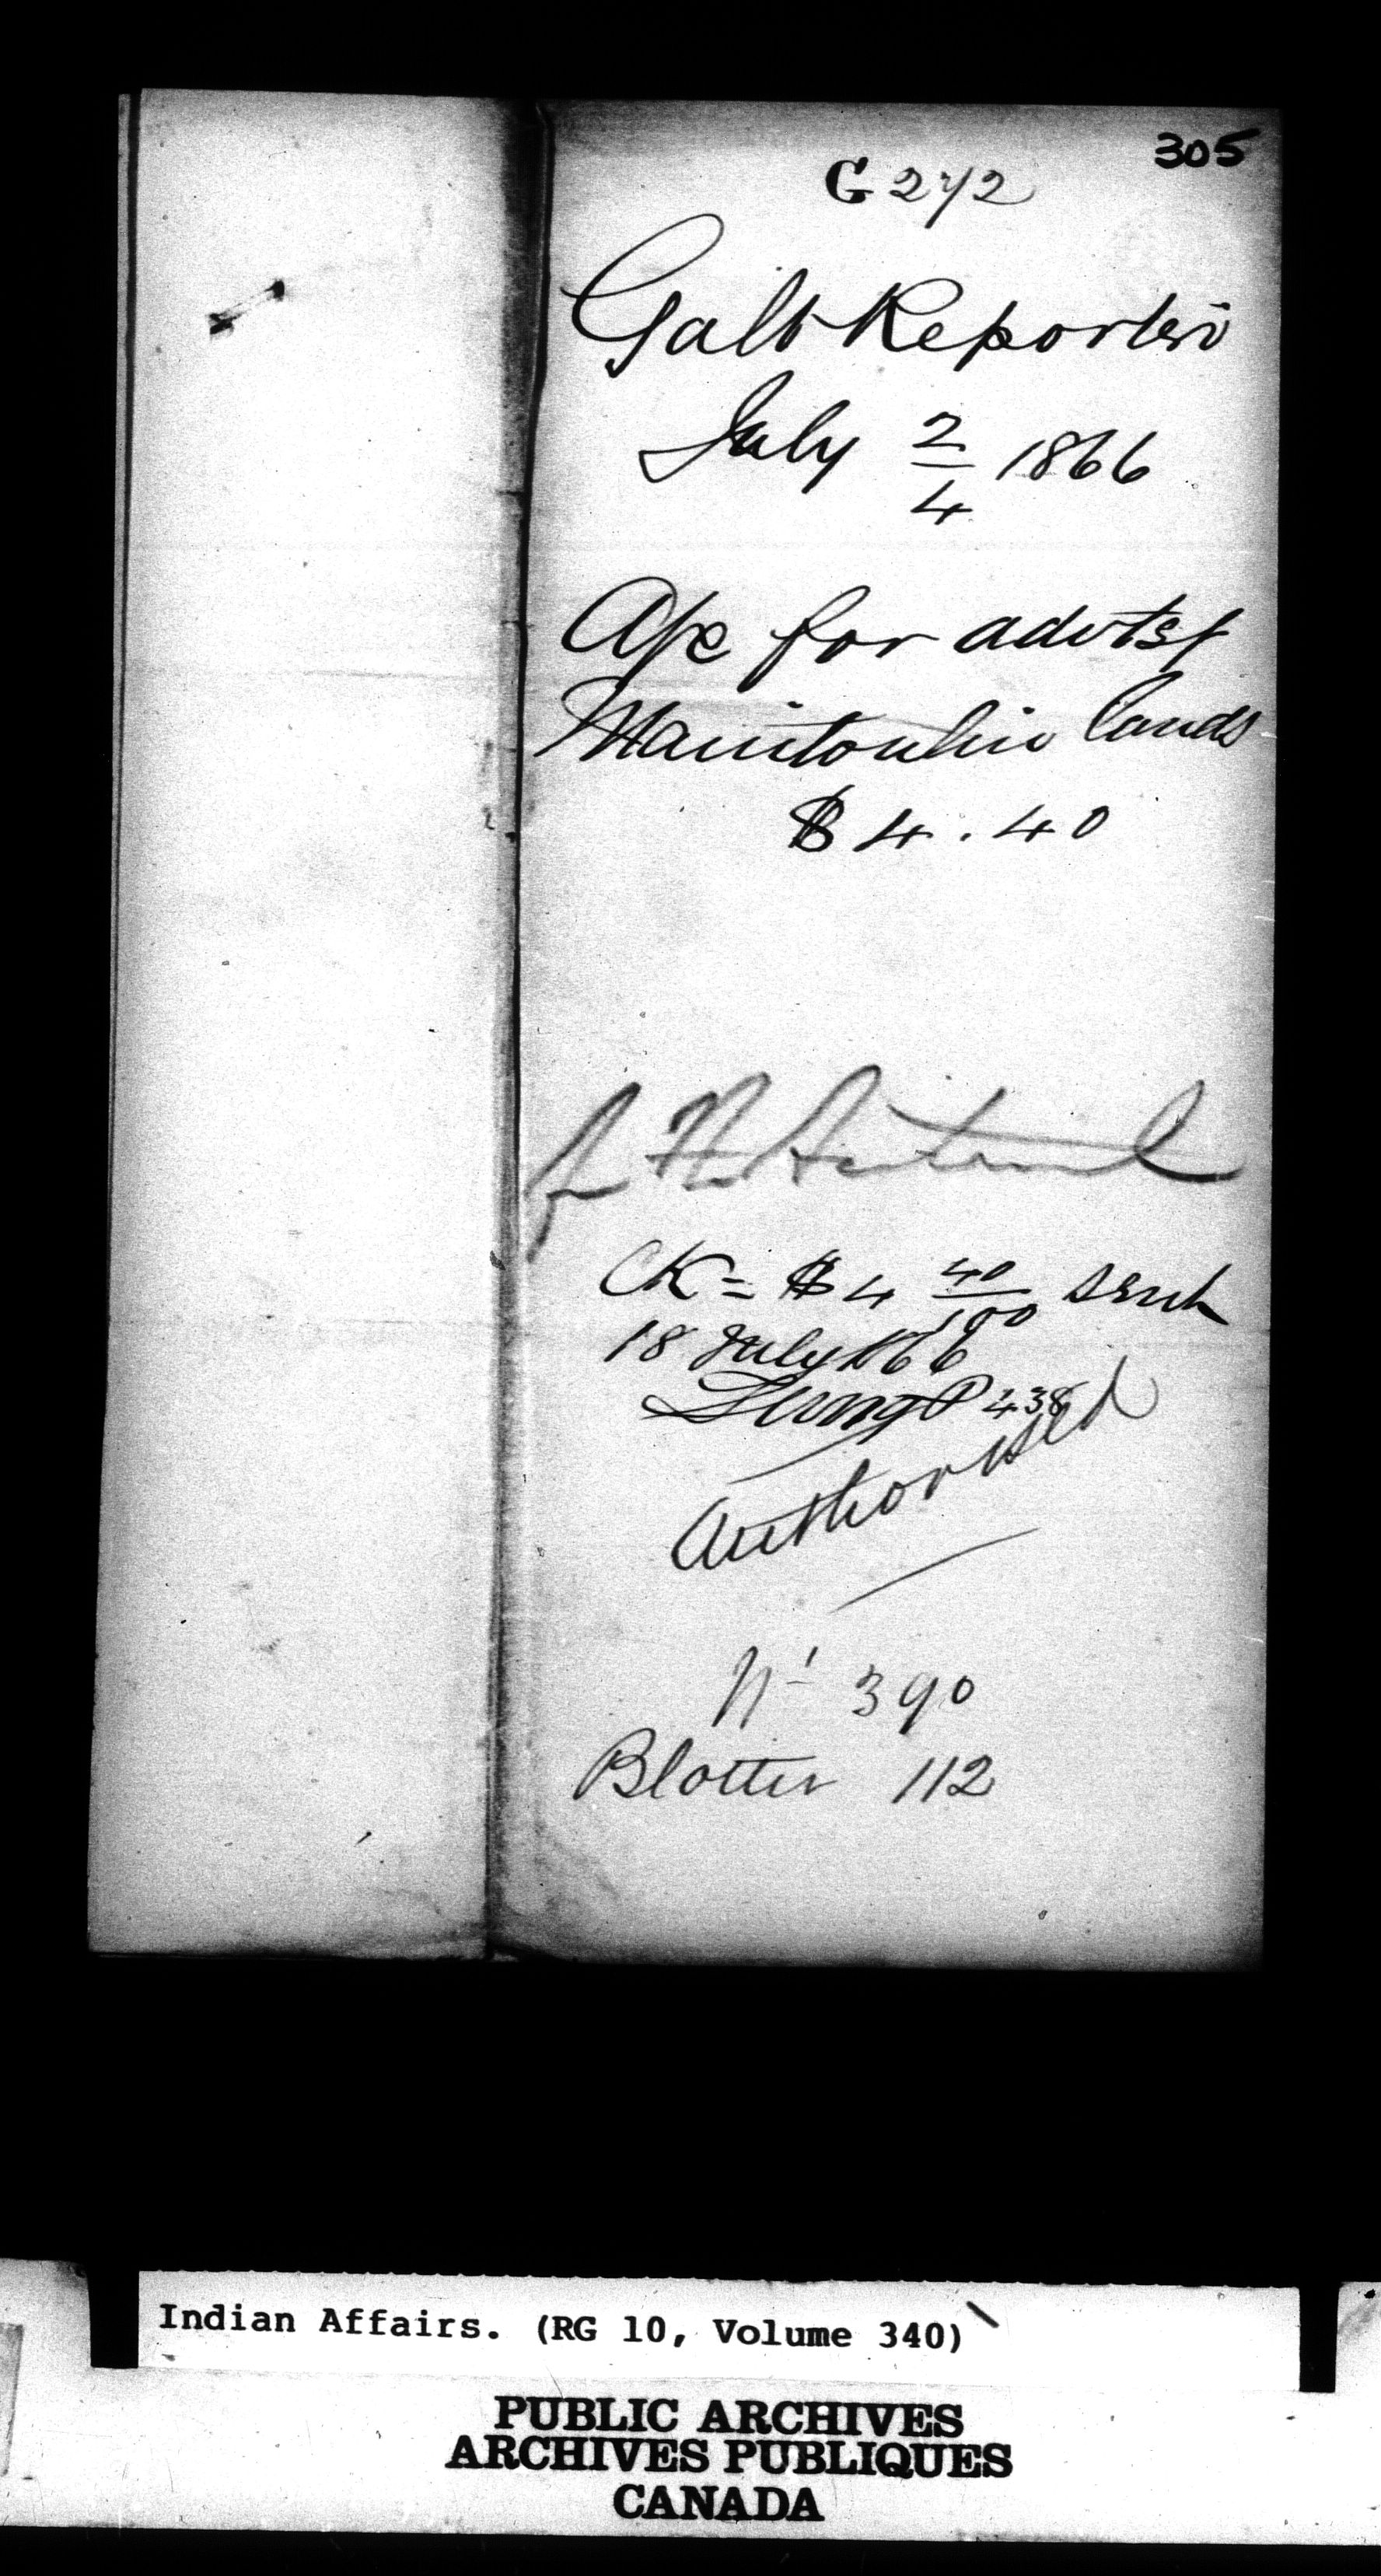 305
G 272
Galt Reporter
July 2/4 1866
A/c for advtsg
Manitoulin lands
$4.40
CK = $4 40/100 sent
18 July 1866
P 438
Authorised
No 390
Blotter 112
Indian Affairs. (RG 10, Volume 340)
PUBLIC ARCHIVES
ARCHIVES PUBLIQUES
CANADA